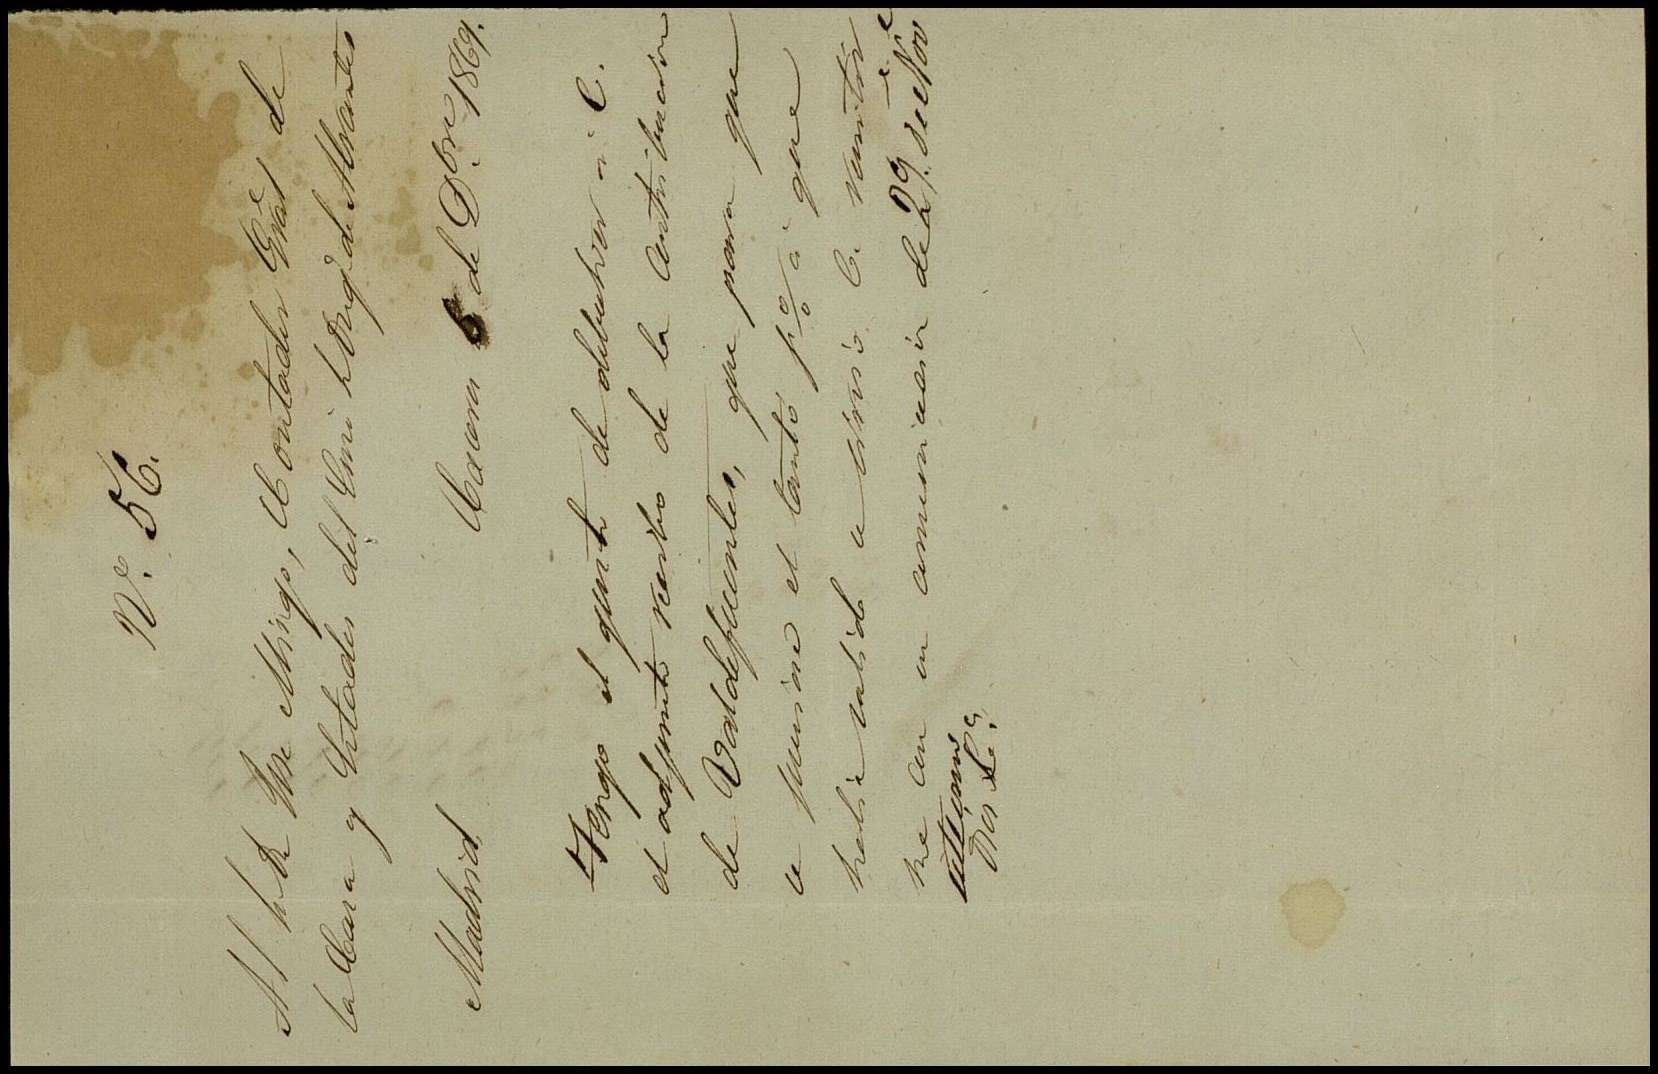 Nº. 56.
Al Sr Dn José Mingo, Contador Gral de
la Casa y Estados del Exmo Sr Duqe de Abrantes
Madrid Cáceres 6 de Dbre 1869.
Tengo el gusto de debolver á V.
el adjunto recibo de la contribucion
de Valdefuentes, que para que
se pusiese el tanto p% á que
habia salido se sirvió V. remitir
me con su comunicasion de 29 de Nove
último
Dios &ª